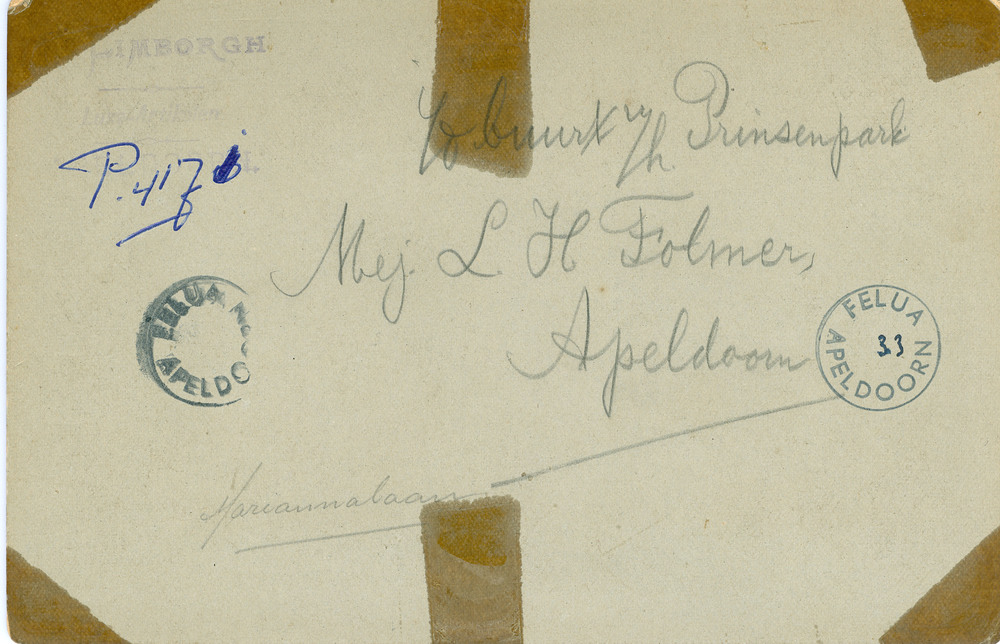 LIMBORGH
P. 417
buurt v/h. Prinsenpark
Mej. L. H Folmer,
Apeldoorn
FELUA
APELDO
FELUA
33
APELDOORN
Mariannalaan